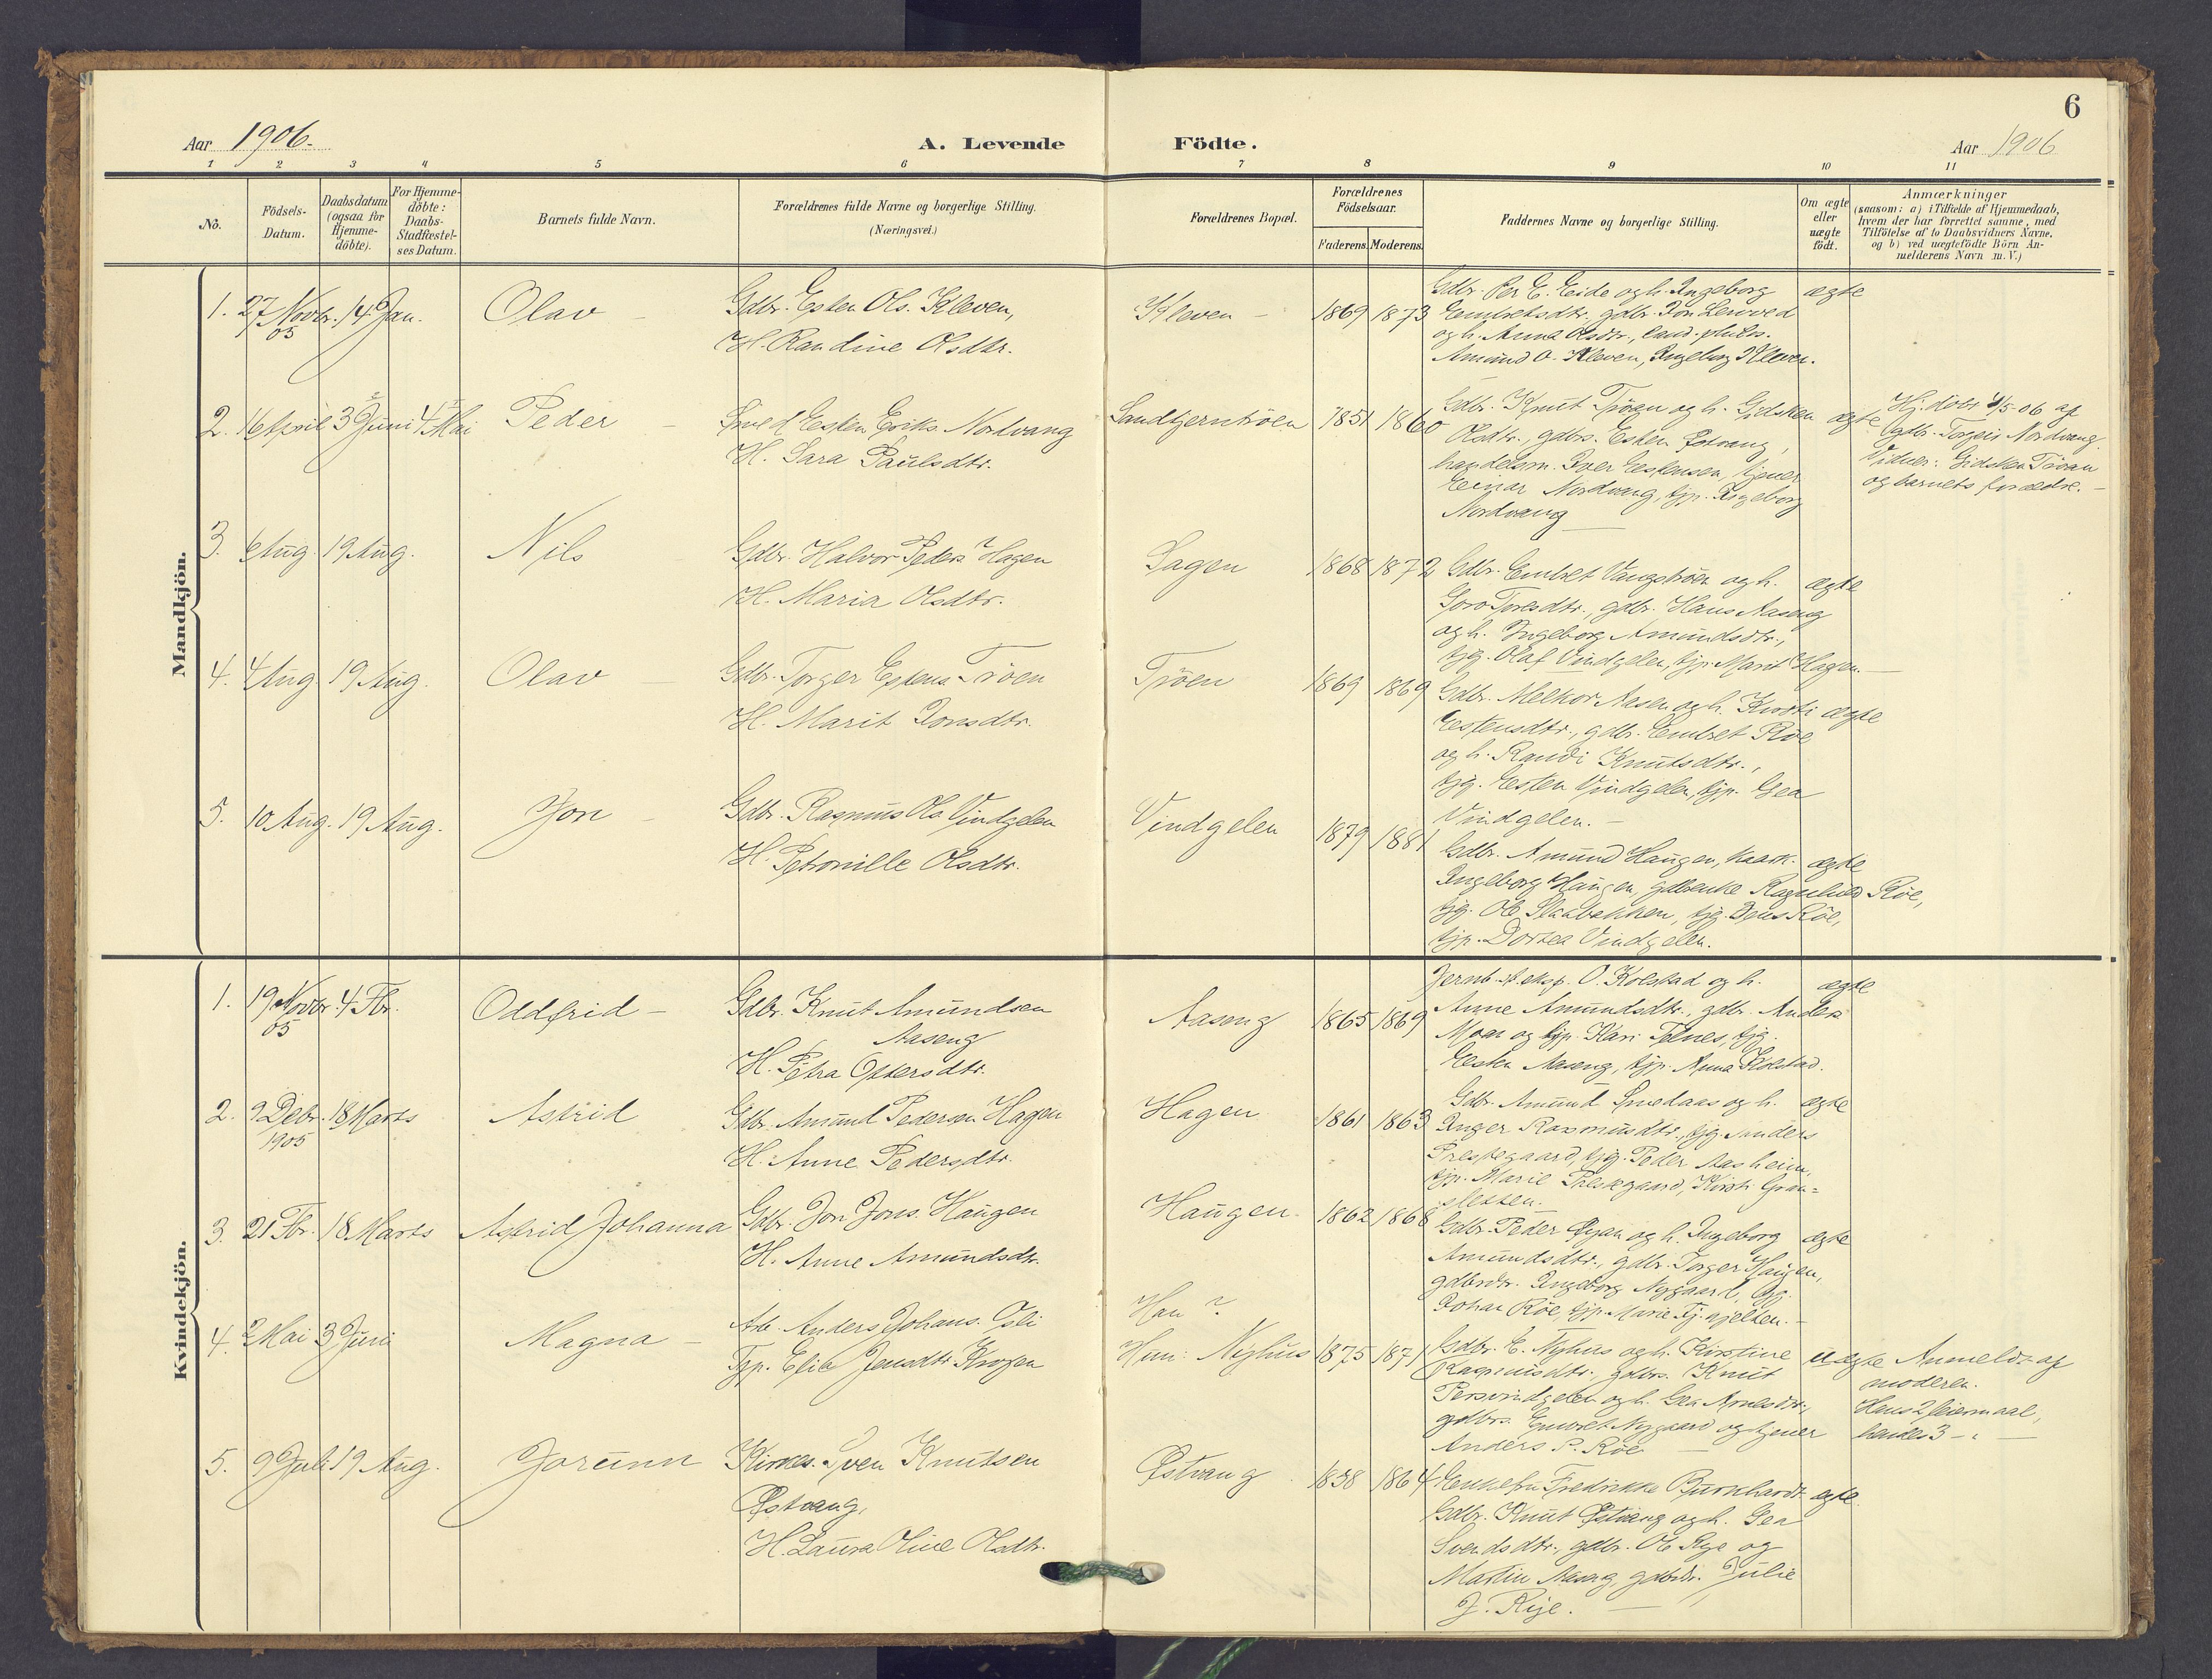 6
Aar 1906.
A. Levende
Födte.
Aar 1906
1 2 3 4 5 6 7 8 9 10 11
No.
Födsels-
Datum.
Daabsdatum
(ogsaa for
Hjemme-
döbte).
For Hjemme-
döbte:
Daabs-
Stadfæstel-
ses Datum.
Barnets fulde Navn.
Forældrenes fulde Navne og borgerlige Stilling.
(Næringsvei.)
Forældrenes Bopæl.
Forældrenes
Födselsaar.
Faderens. Moderens.
Faddernes Navne og borgerlige Stilling.
Om ægte
eller
uægte
födt.
Anmærkninger
(saasom: a) i Tilfælde af Hjemmedaab,
hvem der har forrettet samme, med
Tilföielse af to Daabsvidners Navne.
og b) ved uægtefödte Börn An-
melderens Navn m. V.)
Mandkjön.
1. 27 Novbr. 05 14 Jan. Olav
Gdbr. Esten Ols. Kleven,
H. Randine Olsdtr.
Kleven 1869 1873
Gdbr. Per E. Eide og h. Ingeborg
Embretsdtr., gdbr. Jon
og h. Anna Olsdtr., cand. philos.
Amund O. Kleven, Ingeborg Kleven.
ægte
2. 16 April 3 Juni 4 Mai Peder
Smed Esten Eriks. Nordvang
H. Sara Paulsdtr.
Sandtjerntröen 1851 1860
Gdbr. Knut Tröen og h. Gidsken
Olsdtr., gdbrs. Esten Estvang,
handelsm. Iver Estensen, tjener
Einar Nordvang, tjp. Ingeborg
Nordvang
ægte
Hj. döbt 4/5-06 af
gdbr. Torgeir Nordvang.
Vidner: Gidsken Tröen
og barnets forældre.
3. 6 Aug. 19 Aug. Nils
Gdbr. Halvor Peders. Hagen
H. Maria Olsdtr.
Hagen 1868 1872
Gdbr. Embret Vangströen og h.
Goro Toresdtr., gdbr. Hans Aaseng
og h. Ingeborg Amundsdtr.,
tjg. Olaf Vindgelen, tjp. Marit Hagen.
ægte
4. 4 Aug. 19 Aug. Olav
Gdbr. Torger Estens. Tröen
H. Marit Jonsdtr.
Tröen 1869 1869
Gdbr. Melkor Aasen og h. Kirsti
Estensdtr., gdbr. Embret Röe
og h. Randi Knutsdtr.,
tjg. Esten Vindgelen, tjp. Gea
Vindgelen.
ægte
5. 10 Aug. 19 Aug. Jon
Gdbr. Rasmus Ols. Vindgelen
H. Petronille Olsdtr.
Vindgelen 1879 1881
Gdbr. Amund Haugen,
Ingeborg Haugen, gdbrenke Ragnhild Röe,
tjg. Ole Slaabakken, tjg. Jens Röe,
tjp. Dortea Vindgelen.
ægte
Kvindekjön.
1. 19 Novbr. 05 4 Fbr. Oddfrid
Gdbr. Knut Amundsen
Aaseng
H. Petra Ottersdtr.
Aaseng 1865 1869
Jernb. st. eksp. O. Kolstad og h.
Anne Amundsdtr., gdbr. Anders
Moan og tjp. Kari Telnes, tjg.
Esten Aaseng, tjp. Anna Kolstad.
ægte
2. 9 Debr. 1905 18 Marts Astrid
Gdbr. Amund Pedersen Hagen
H. Anne Pedersdtr.
Hagen 1861 1863
Gdbr. Amund Smedaas og h.
Inger Rasmusdtr., tjg. Anders
Prestegaard, tjg. Peder Aasheim,
tjp. Marie Prestegaard, Kirsti Gran=
sletten.
ægte
3. 21 Fbr. 18 Marts Astrid Johanna
Gdbr. Jon Jons. Haugen
H. Anne Amundsdtr.
Haugen 1862 1868
Gdbr. Peder Öyan og h. Ingeborg
Amundsdtr., gdbr. Torger Haugen,
gdbrdtr. Ingeborg Nygaard, tjg.
Johan Röe, tjp. Marie
ægte
4. 2 Mai 3 Juni Magna
Arb. Anders Johans. Osli
Tjp. Elia Jensdtr. Krogen
Han ?
Hun: Nyhus 1875 1871
Gdbr. E. Nyhus og h. Kirstine
Rasmusdtr., gdbrs. Knut
Persvindgelen og h. Gea Arnesdtr.,
gdbrs. Embret Nygaard og tjener
Anders P. Röe
uægte
Anmeldt af
moderen.
Hans 2 leiermaal,
hendes 3 - " -
5. 9 Juli 19 Aug. Jorunn
Kirkes. Sven Knutsen
Östvang,
H. Laura Oline Olsdtr.
Östvang 1838 1864
Enkefru Fredrikke Burchardt
Gdbr. Knut Östvang og h. Gea
Svendsdtr., gdbr. Ole Rye og
Martin Aaseng, gdbrdtr. Julie
J. Rye.
ægte